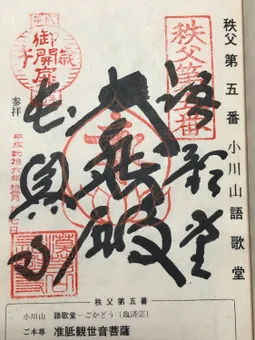 秩父第五番 小川山 語歌堂
秩父第五番
語歌堂
大悲殿
長興寺
御開扉
参拝
秩父第五番
小川山 語歌堂―ごかどう(臨済宗)
ご本尊 准胝観世音菩薩